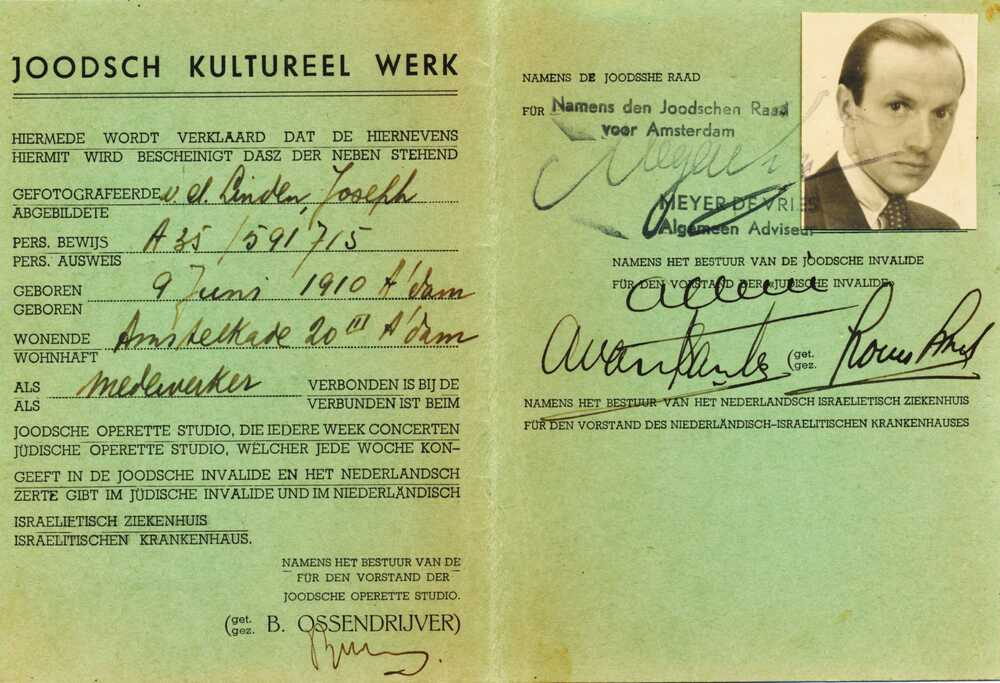 JOODSCH KULTUREEL WERK
HIERMEDE WORDT VERKLAARD DAT DE HIERNEVENS
HIERMIT WIRD BESCHEINIGT DASZ DER NEBEN STEHEND
GEFOTOGRAFEERDE v. d. Linden, Joseph
ABGEBILDETE
PERS. BEWIJS A 35 / 591715
PERS. AUSWEIS
GEBOREN 9 Juni 1910 A'dam
GEBOREN
WONENDE Amstelkade 20 III A'dam
WOHNHAFT
ALS medewerker VERBONDEN IS BIJ DE
ALS VERBUNDEN IST BEIM
JOODSCHE OPERETTE STUDIO, DIE IEDERE WEEK CONCERTEN
JÜDISCHE OPERETTE STUDIO, WELCHER JEDE WOCHE KON-
GEEFT IN DE JOODSCHE INVALIDE EN HET NEDERLANDSCH
ZERTE GIBT IM JÜDISCHE INVALIDE UND IM NIEDERLÄNDISCH
ISRAELIETISCH ZIEKENHUIS
ISRAELITISCHEN KRANKENHAUS.
NAMENS HET BESTUUR VAN DE
FÜR DEN VORSTAND DER
JOODSCHE OPERETTE STUDIO.
(get. gez. B. OSSENDRIJVER)
NAMENS DE JOODSSHE RAAD
FÜR Namens den Joodschen Raad
voor Amsterdam
MEYER DE VRIES
Algemeen Adviseur
NAMENS HET BESTUUR VAN DE JOODSCHE INVALIDE
FÜR DEN VORSTAND DER «JÜDISCHE INVALIDE»
(get.
gez.
NAMENS HET BESTUUR VAN HET NEDERLANDSCH ISRAELIETISCH ZIEKENHUIS
FÜR DEN VORSTAND DES NIEDERLÄNDISCH-ISRAELITISCHEN KRANKENHAUSES